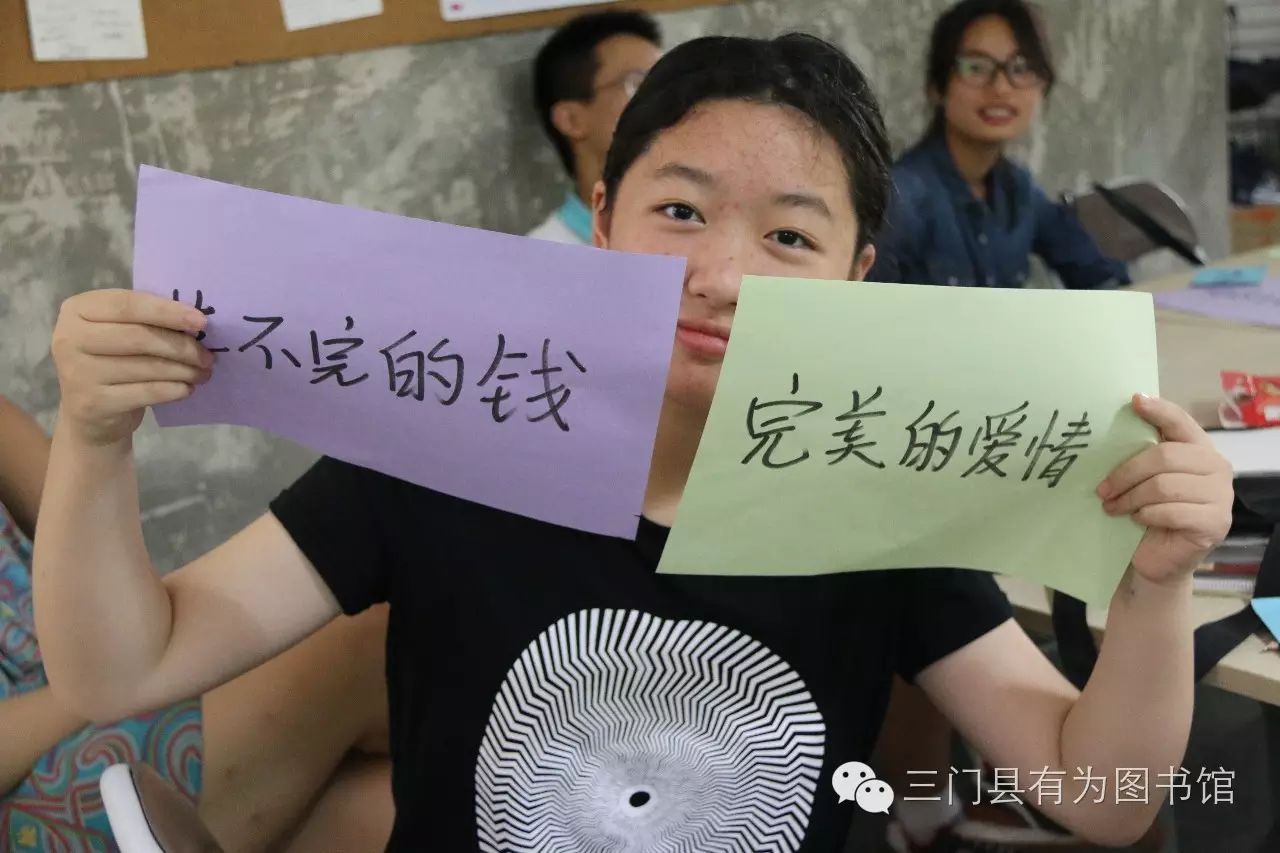 花不完的钱
完美的爱情
三门县有为图书馆